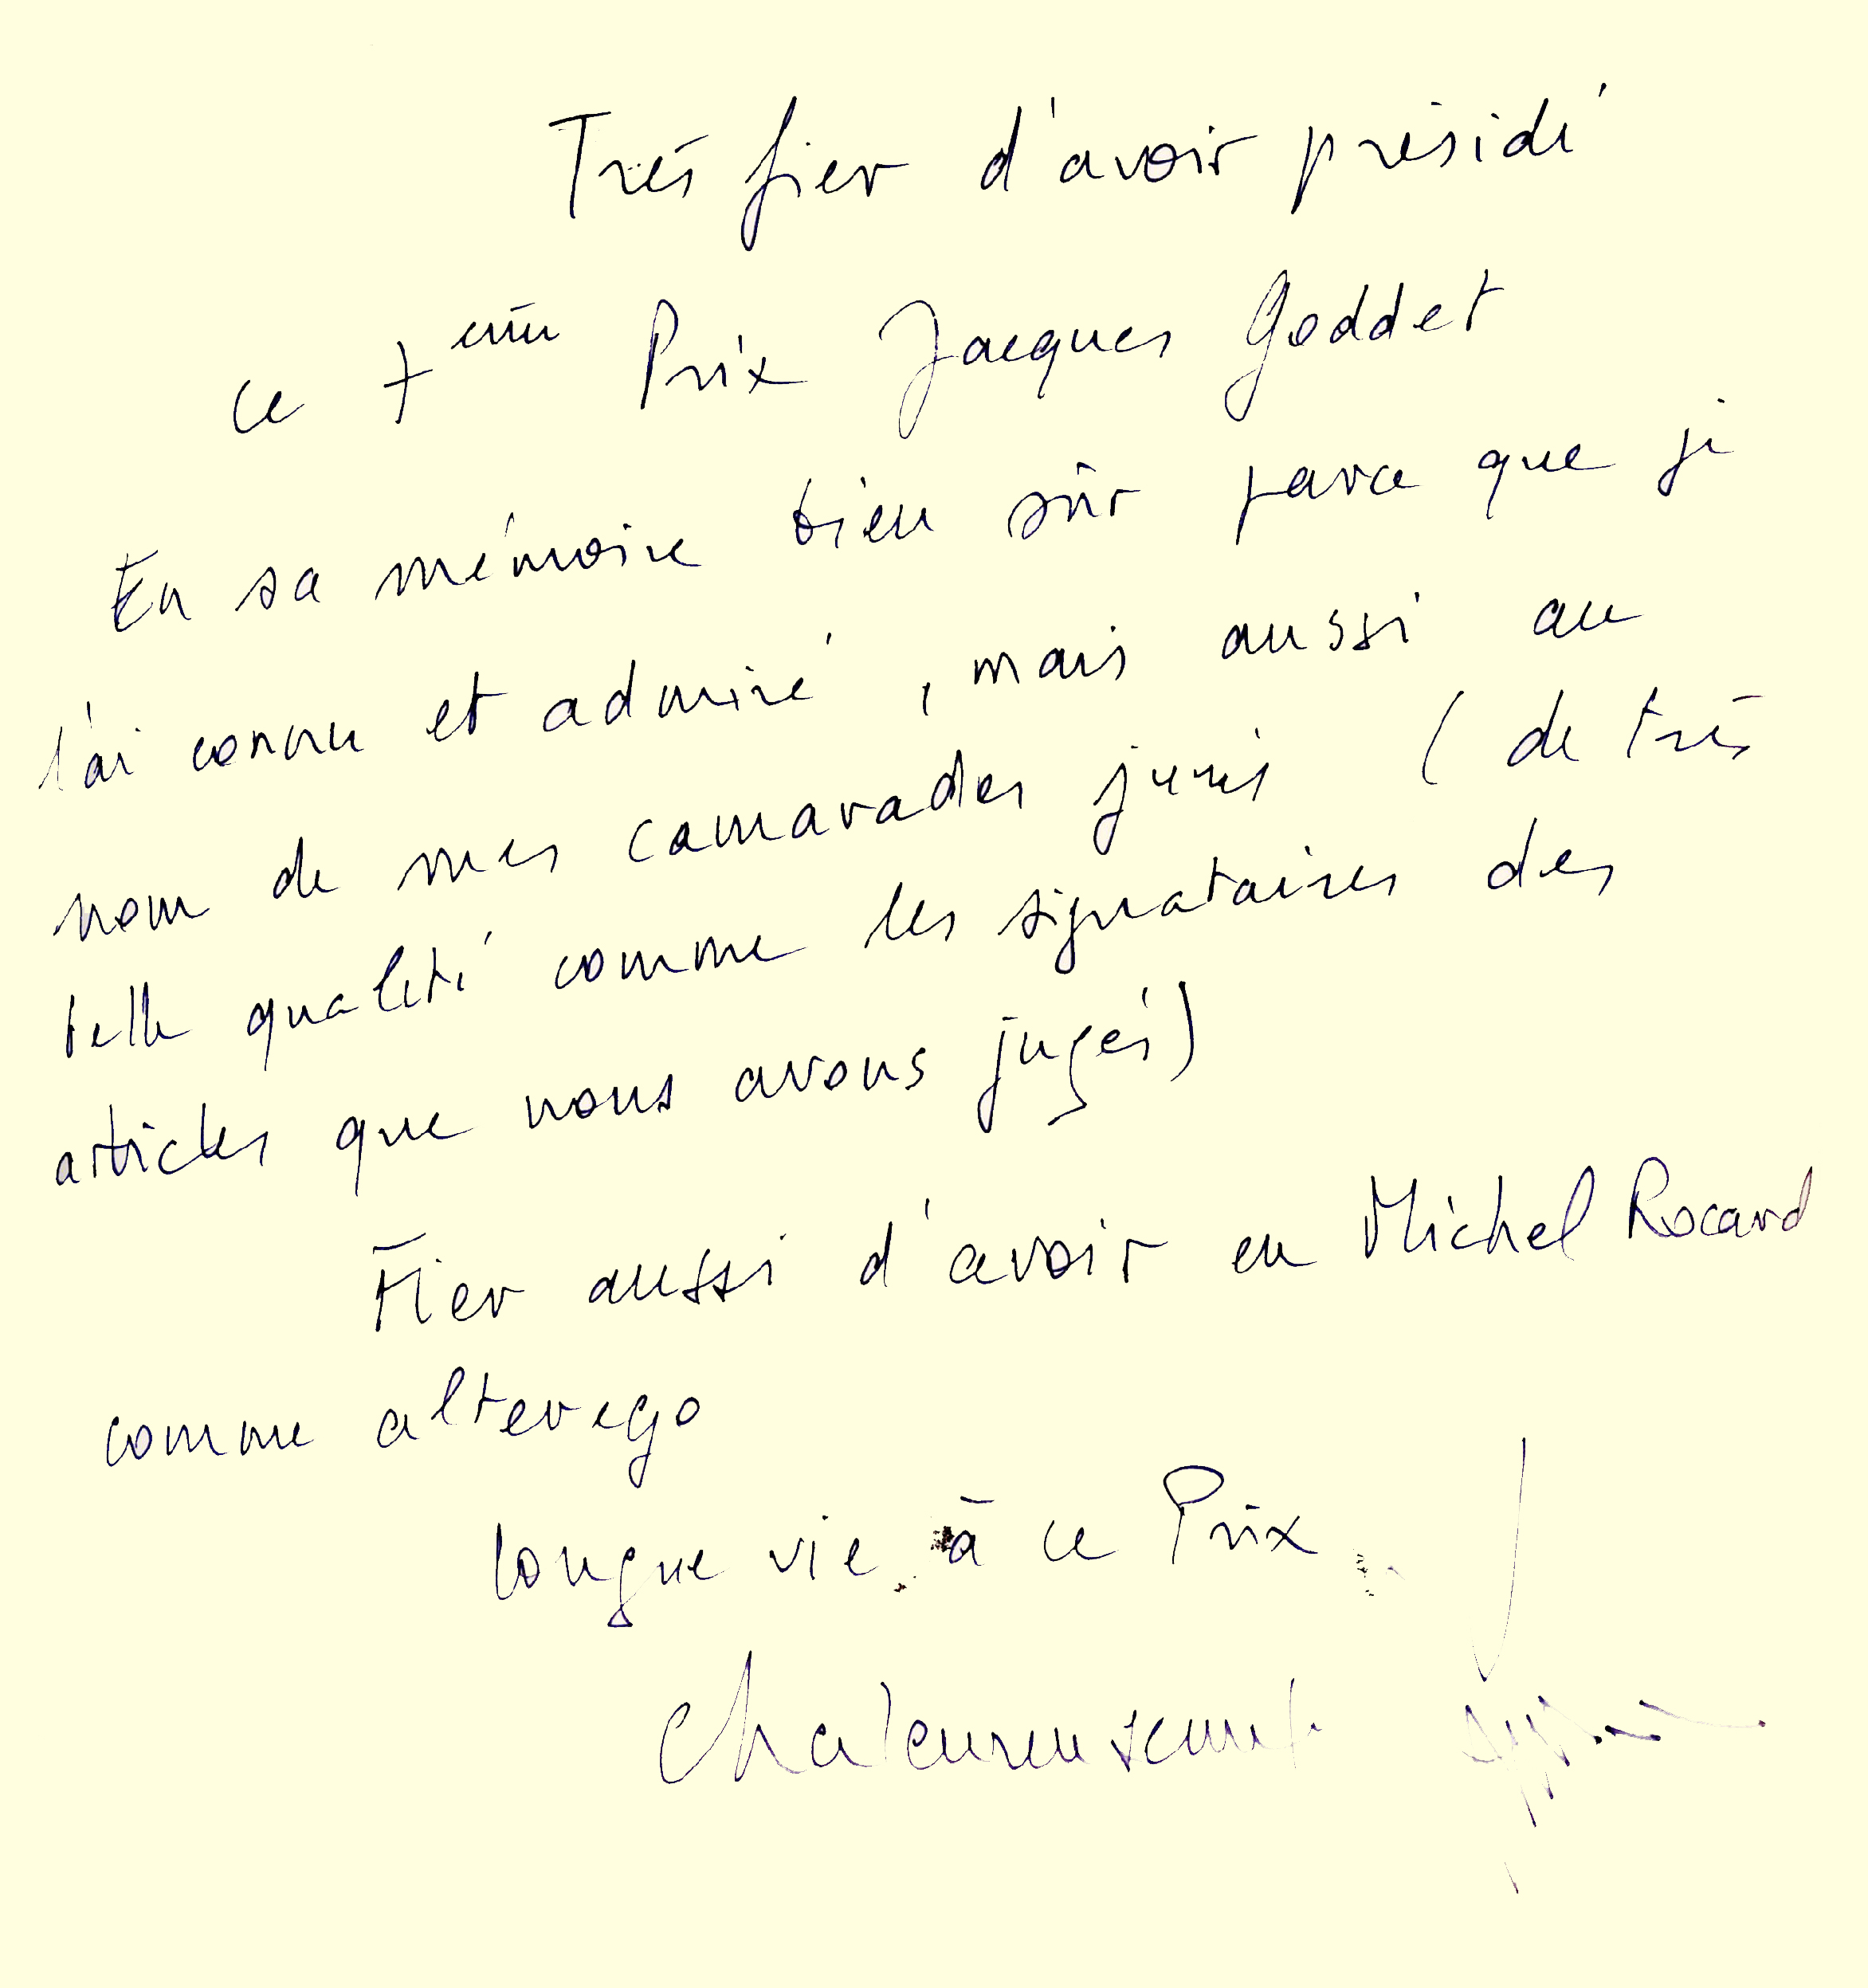 Très fier d'avoir présidé
ce 7ème Prix Jacques Goddet
En sa mémoire bien sûr parce que je
l'ai connu et admiré, mais aussi au
nom de mes camarades jurés (de très
belle qualité comme les signataires des
articles que nous avons jugés)
Fier aussi d'avoir eu Michel Rocard
comme alter ego
Longue vie à ce Prix
Chaleureusement